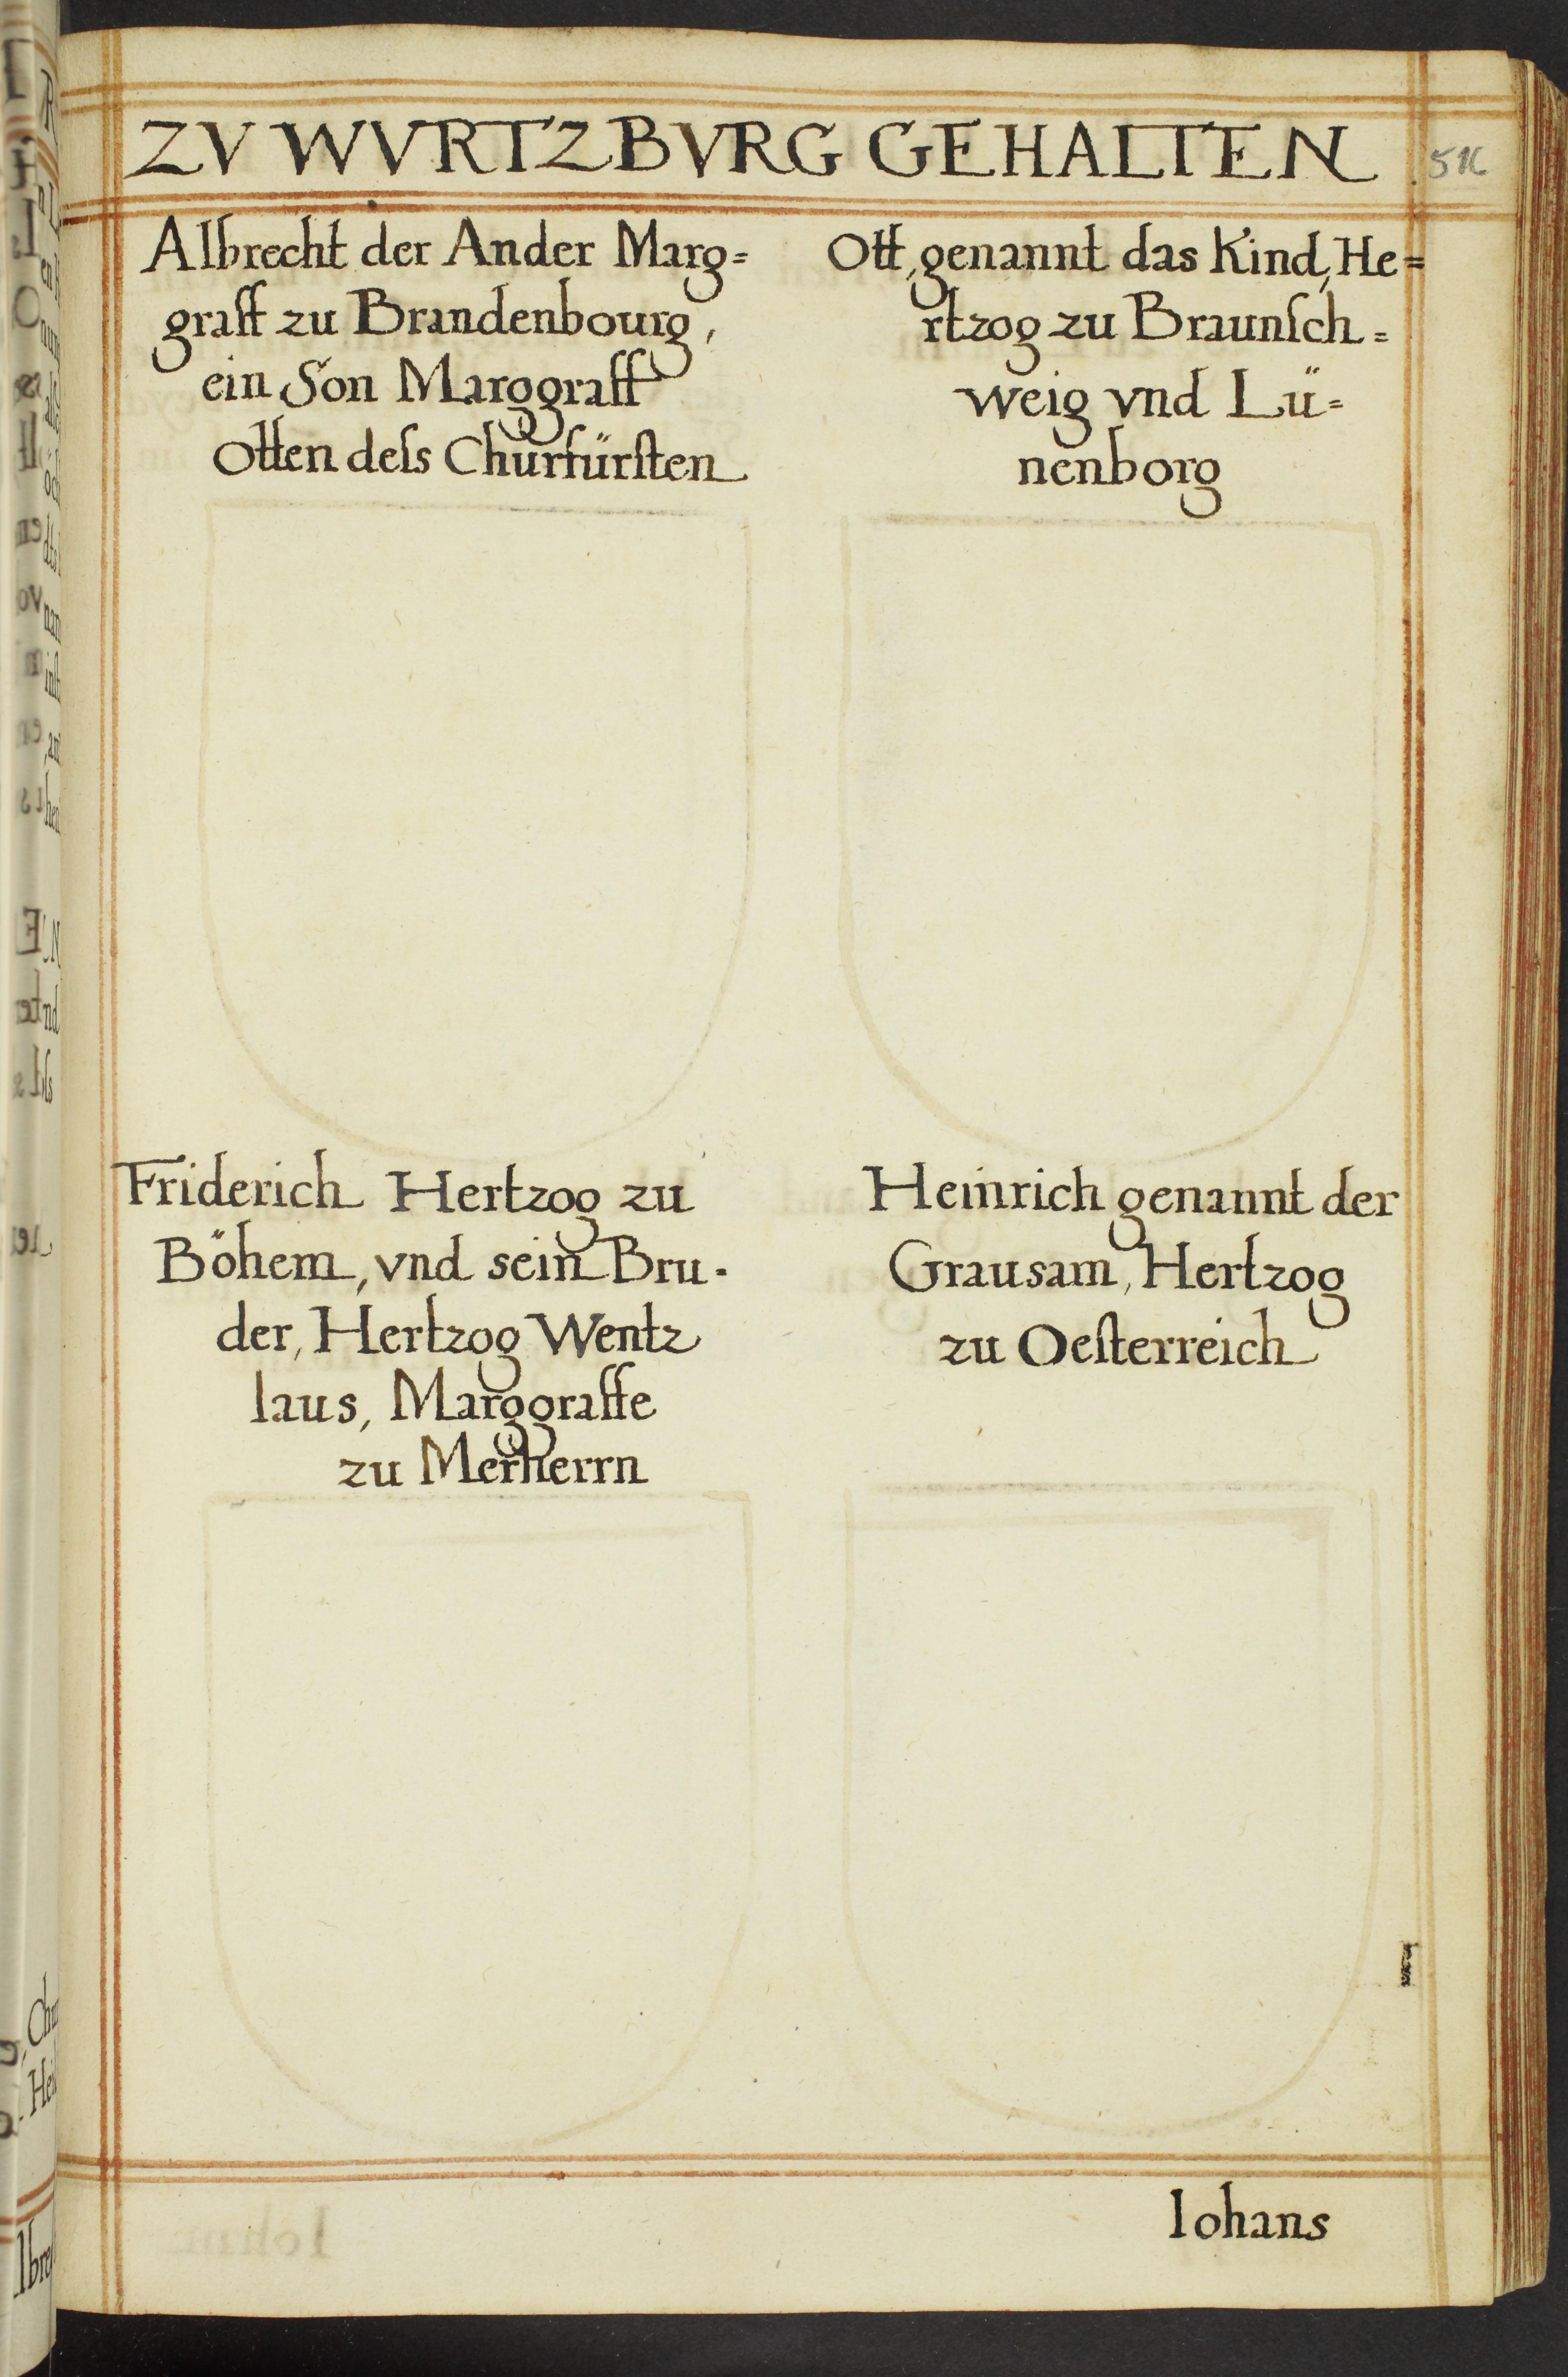 ZV WVRTZBVRG GEHALTEN
Albrecht der Ander Marg=
graff zu Brandenbourg,
ein Son Marggraff
Otten deſs Churfürſten
Ott, genannt das Kind, He=
rtzog zu Braunſch=
weig vnd Lü=
nenborg
Friderich Hertzog zu
Böhem, vnd sein Bru-
der, Hertzog Wentz
laus, Marggraffe
zu Merherrn
Heinrich genannt der
Grausam, Hertzog
zu Oeſterreich
Iohans